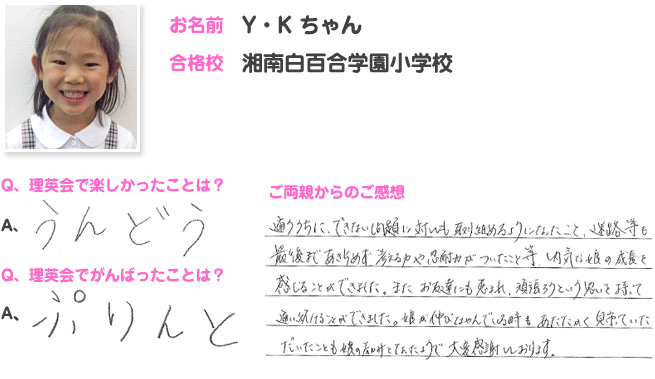 お名前 Y・Kちゃん
合格校 湘南白百合学園小学校
Q、理英会で楽しかったことは？
A、うんどう
Q、理英会でがんばったことは？
A、ぷりんと
ご両親からのご感想
通ううちに、できない問題に対しても取り組めるようになったこと、迷路等も
最後まであきらめず考える力や、忍耐力がついたこと等、内気な娘の成長を
感じることができました。また お友達にも恵まれ、頑張ろうという思いを持って
通い続けることができました。娘が伸びなやんでいる時も あたたかく見守っていた
だいたことも娘の励みとなったようで 大変感謝しております。